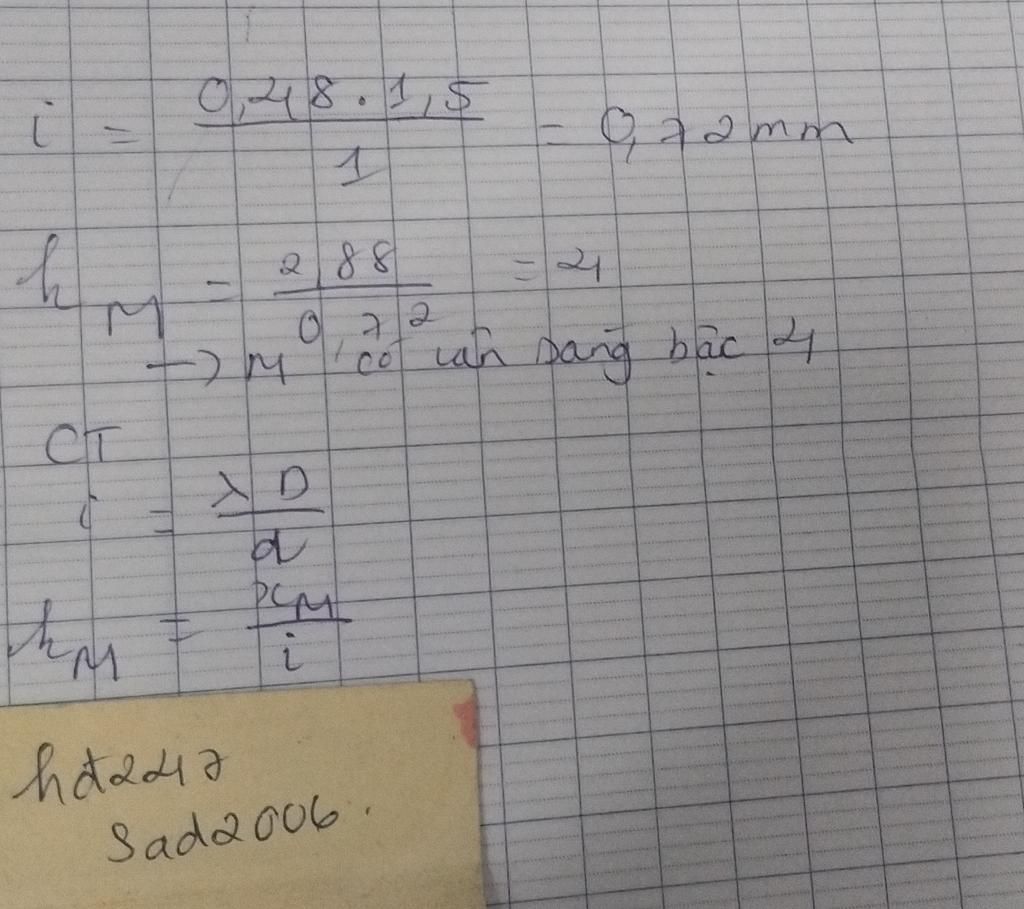 i = 0,48.1,5 / 1 = 0,72mm
k M = 2,88 / 0,72 = 4
→ M có vân sáng bậc 4
CT
i = λD / d
k M = x M / i
hd247
Sad2006.